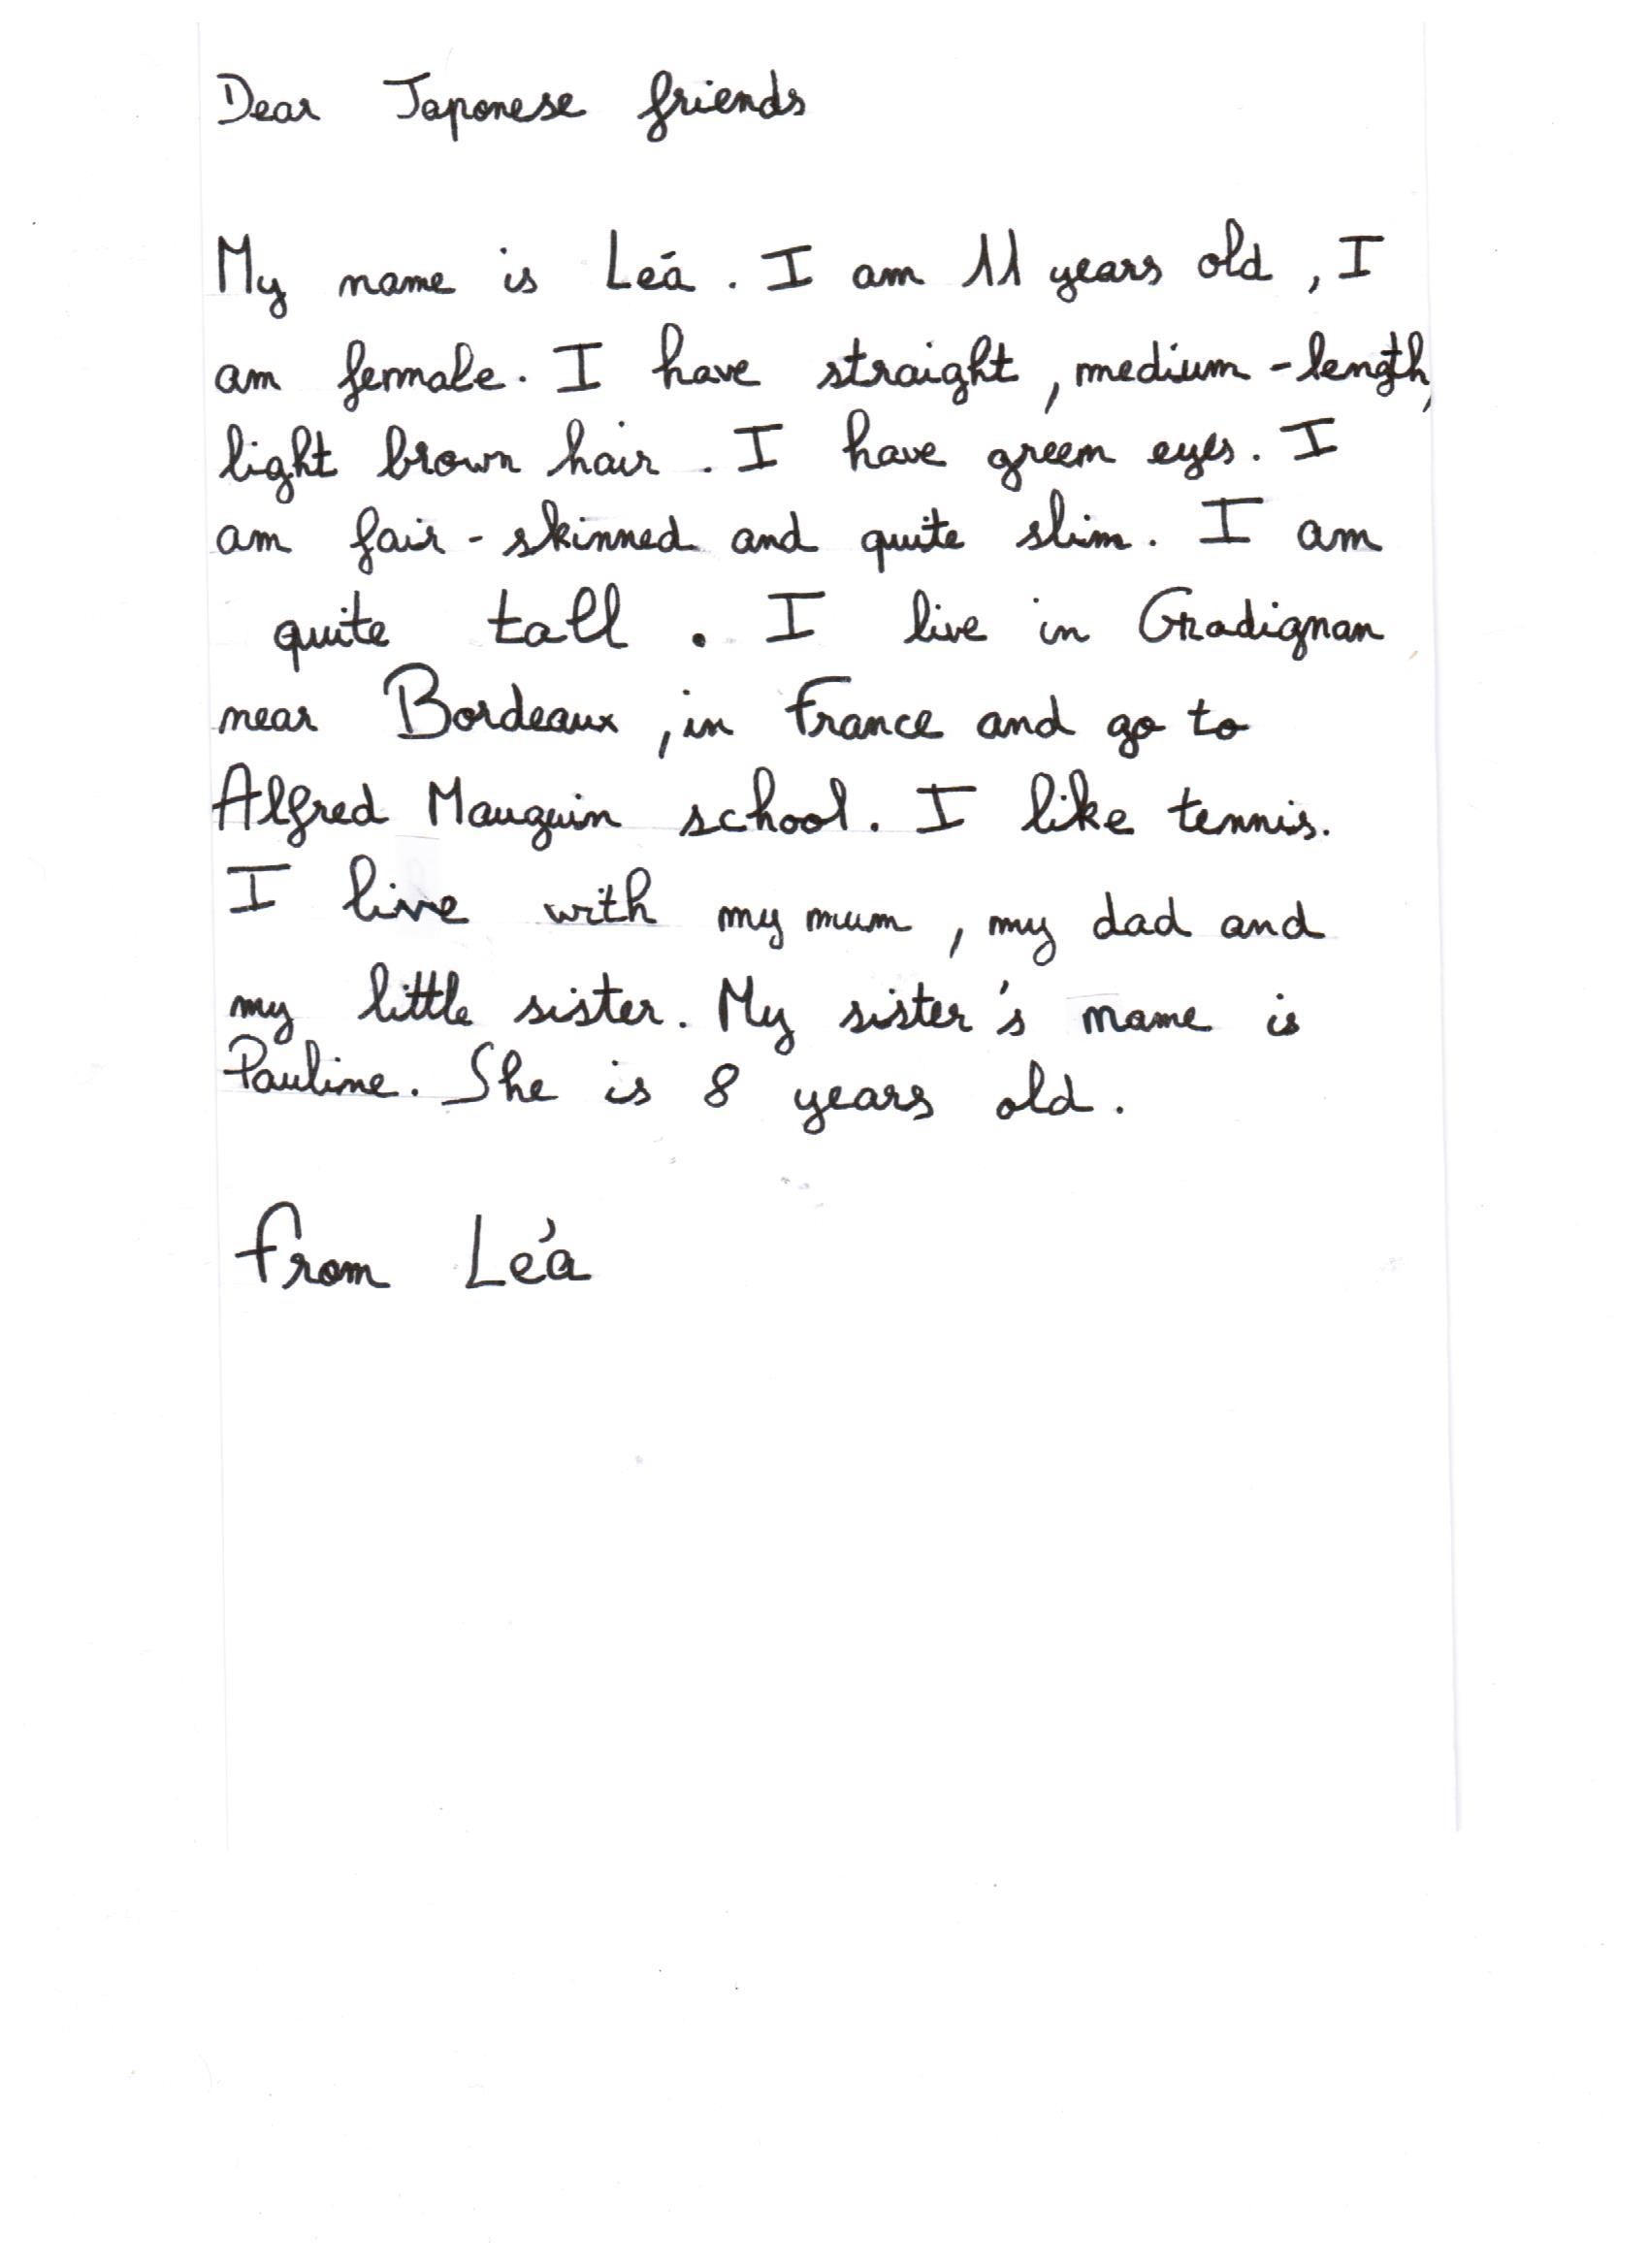 Dear Japonese friends
My name is Leá. I am 11 years old, I
am female. I have straight, medium-length,
light brown hair. I have green eyes. I
am fair-skinned and quite slim. I am
quite tall. I live in Gradignan
near Bordeaux, in France and go to
Alfred Mauguin school. I like tennis.
I live with my mum, my dad and
my little sister. My sister's name is
Pauline. She is 8 years old.
From Léa